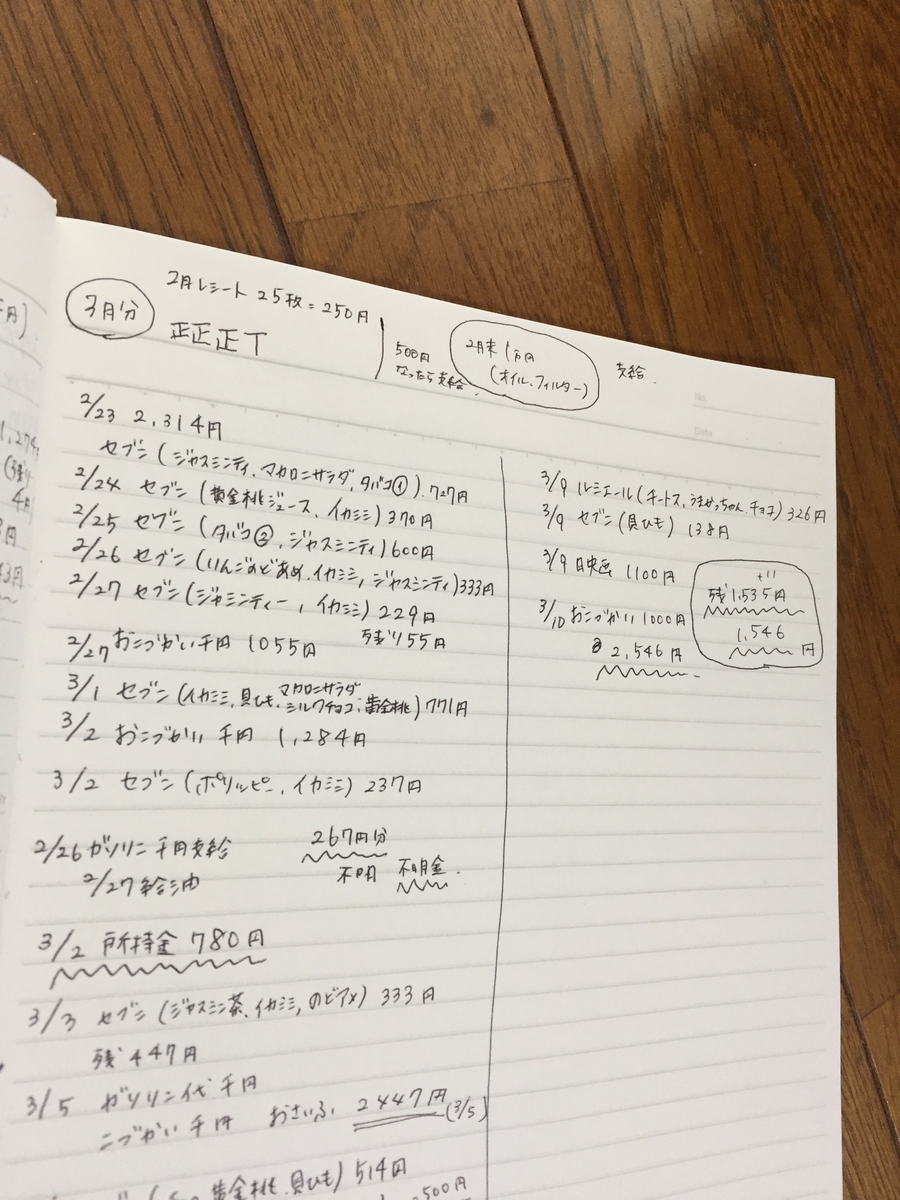 2月レシート 25枚=250円
3月分
正正正T
500円
なったら支給
2月末1万円
(オイル.フィルター)
支給.
2/23 2,314円
セブン(ジャスミンティ、マカロニサラダ、タバコ①).727円
2/24 セブン(黄金桃ジュース、イカミミ)370円
2/25 セブン(タバコ②、ジャスミンティ)600円
2/26 セブン(りんごのどあめ、イカミミ、ジャスミンティ)333円
2/27 セブン(ジャミンティー、イカミミ)229円
2/27おこづかい千円 1055円 残り55円
3/1 セブン(イカミミ、貝ひも、マカロニサラダ
ミルクチョコ、黄金桃)771円
3/2 おこづかい 千円 1,284円
3/2 セブン(ポリッピー、イカミミ)237円
2/26ガソリン千円支給
2/27給油
267円分
不明 不明金.
3/2 所持金 780円
3/3 セブン(ジャスミン茶、イカミミ、のどアメ)333円
残 447円
3/5 ガソリン代千円
こづかい千円 おさいふ 2447円(3/5)
黄金桃、貝ひも)514円
500円
3/9 ルミエール(チートス、うまかっちゃん、チョコ)326円
3/9 セブン(貝ひも) 138円
3/9 映画 1100円
+11
残1,535円
1,546円
3/10おこづかい1000円
2,546円
No.
Date